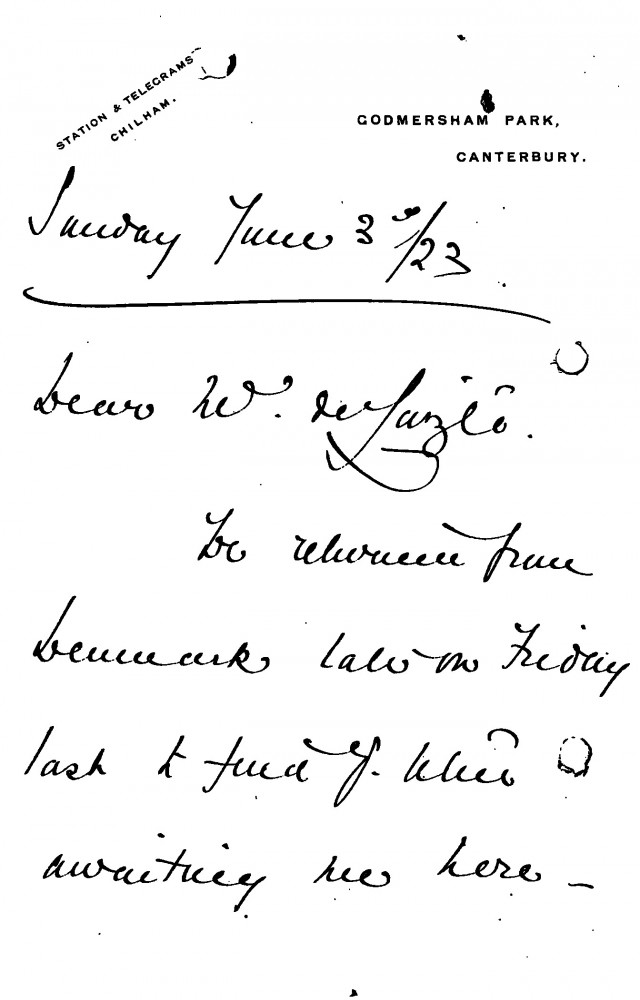 STATION & TELEGRAMS
CHILHAM.
GODMERSHAM PARK,
CANTERBURY.
Sunday June 3rd/23.
Dear Mr. de László.
We returned from
Denmark late on Friday
last to find yr.
awaiting me here —